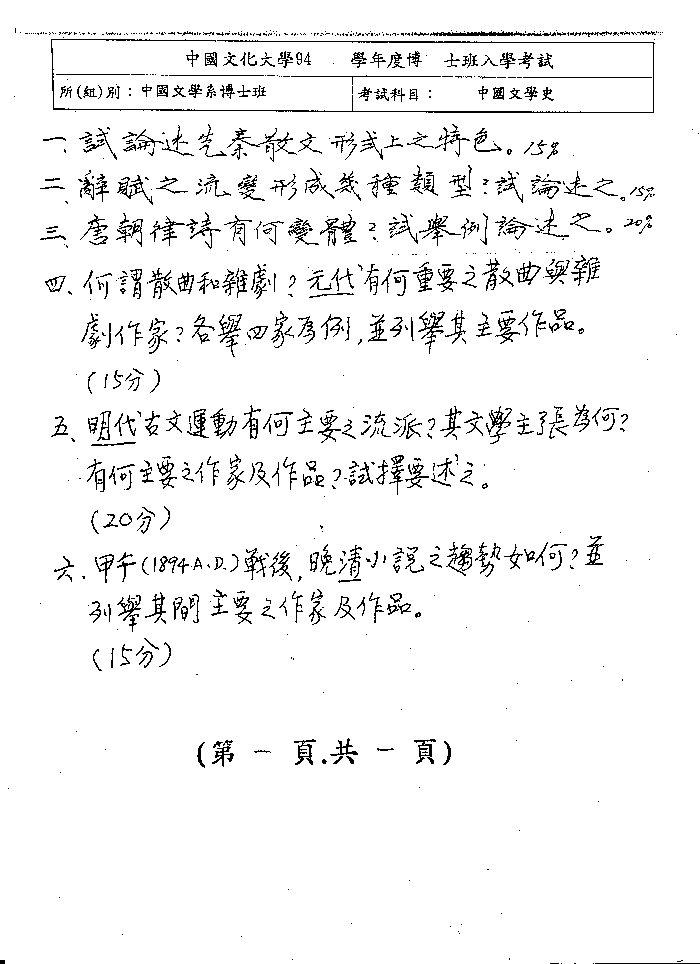 中國文化大學94 學年度博 士班入學考試
所(組)別：中國文學系博士班 考試科目： 中國文學史
一、試論述先秦散文形式上之特色。15%
二、辭賦之流變形成幾種類型？試論述之。15%
三、唐朝律詩有何變體？試舉例論述之。20%
四、何謂散曲和雜劇？元代有何重要之散曲與雜
劇作家？各舉四家為例，並列舉其主要作品。
(15分)
五、明代古文運動有何主要之流派？其文學主張為何？
有何主要之作家及作品？試擇要述之。
(20分)
六、甲午(1894A.D.)戰後，晚清小說之趨勢如何？並
列舉其間主要之作家及作品。
(15分)
(第一頁.共一頁)